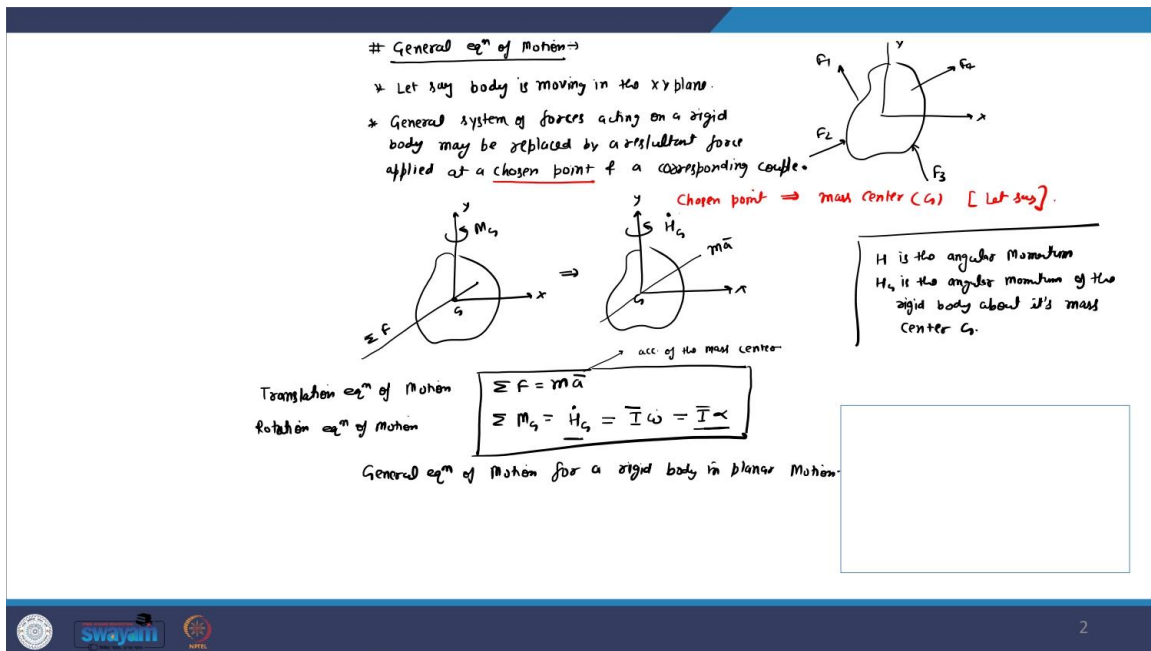 # General eqⁿ of Motion →
* Let say body is moving in the xy plane.
* General system of forces acting on a rigid
body may be replaced by a resultant force
applied at a chosen point & a corresponding couple.
y
F1
F4
x
F2
F3
Chosen point ⇒ mass center (G) [Let say].
y
M_G
x
G
Σ F
⇒
y
Ḣ_G
mā
x
G
H is the angular Momentum
H_G is the angular momentum of the
rigid body about it's mass
center G.
acc. of the mass center
Translation eqⁿ of Motion
Σ F = mā
Rotation eqⁿ of Motion
Σ M_G = Ḣ_G = Ī ω̇ = Ī α
General eqⁿ of Motion for a rigid body in planar Motion.
swayam
NPTEL
2